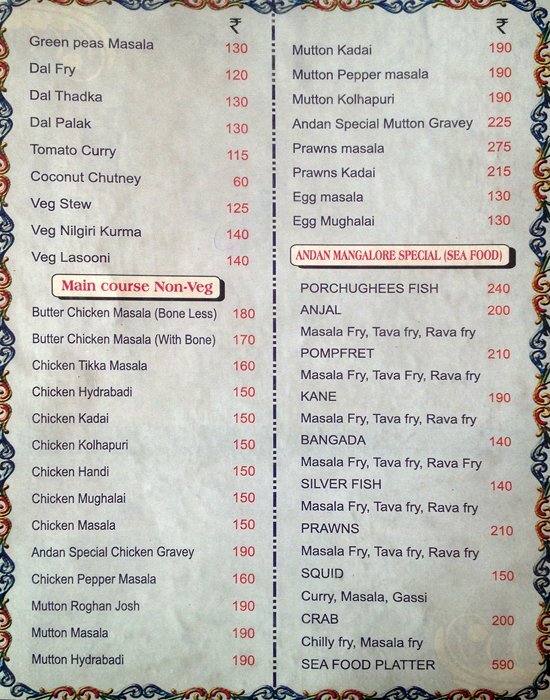 ₹
Green peas Masala 130
Dal Fry 120
Dal Thadka 130
Dal Palak 130
Tomato Curry 115
Coconut Chutney 60
Veg Stew 125
Veg Nilgiri Kurma 140
Veg Lasooni 140
Main course Non-Veg
Butter Chicken Masala (Bone Less) 180
Butter Chicken Masala (With Bone) 170
Chicken Tikka Masala 160
Chicken Hydrabadi 150
Chicken Kadai 150
Chicken Kolhapuri 150
Chicken Handi 150
Chicken Mughalai 150
Chicken Masala 150
Andan Special Chicken Gravey 190
Chicken Pepper Masala 160
Mutton Roghan Josh 190
Mutton Masala 190
Mutton Hydrabadi 190
₹
Mutton Kadai 190
Mutton Pepper masala 190
Mutton Kolhapuri 190
Andan Special Mutton Gravey 225
Prawns masala 275
Prawns Kadai 215
Egg masala 130
Egg Mughalai 130
ANDAN MANGALORE SPECIAL (SEA FOOD)
PORCHUGHEES FISH 240
ANJAL 200
Masala Fry, Tava fry, Rava fry
POMPFRET 210
Masala Fry, Tava Fry, Rava fry
KANE 190
Masala Fry, Tava fry, Rava fry
BANGADA 140
Masala Fry, Tava fry, Rava Fry
SILVER FISH 140
Masala Fry, Tava fry, Rava fry
PRAWNS 210
Masala Fry, Tava fry, Rava fry
SQUID 150
Curry, Masala, Gassi
CRAB 200
Chilly fry, Masala fry
SEA FOOD PLATTER 590